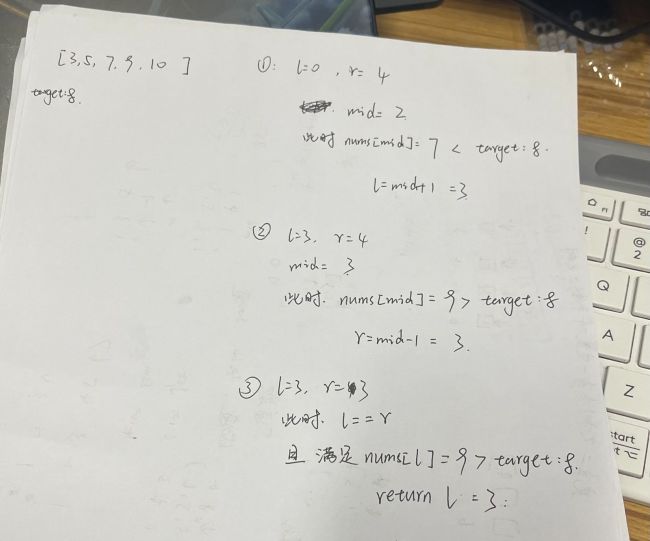 [3,5,7,9,10 ]
target:8.
①: l=0 , r=4
mid=2
此时 nums[mid]=7 < target:8.
l=mid+1 =3
② l=3, r=4
mid= 3
此时. nums[mid]=9 > target:8
r=mid-1 = 3.
③ l=3, r=3
此时. l==r
且 满足 nums[l]=9 > target:8.
return l =3:
Q
@
2
A
Z
start